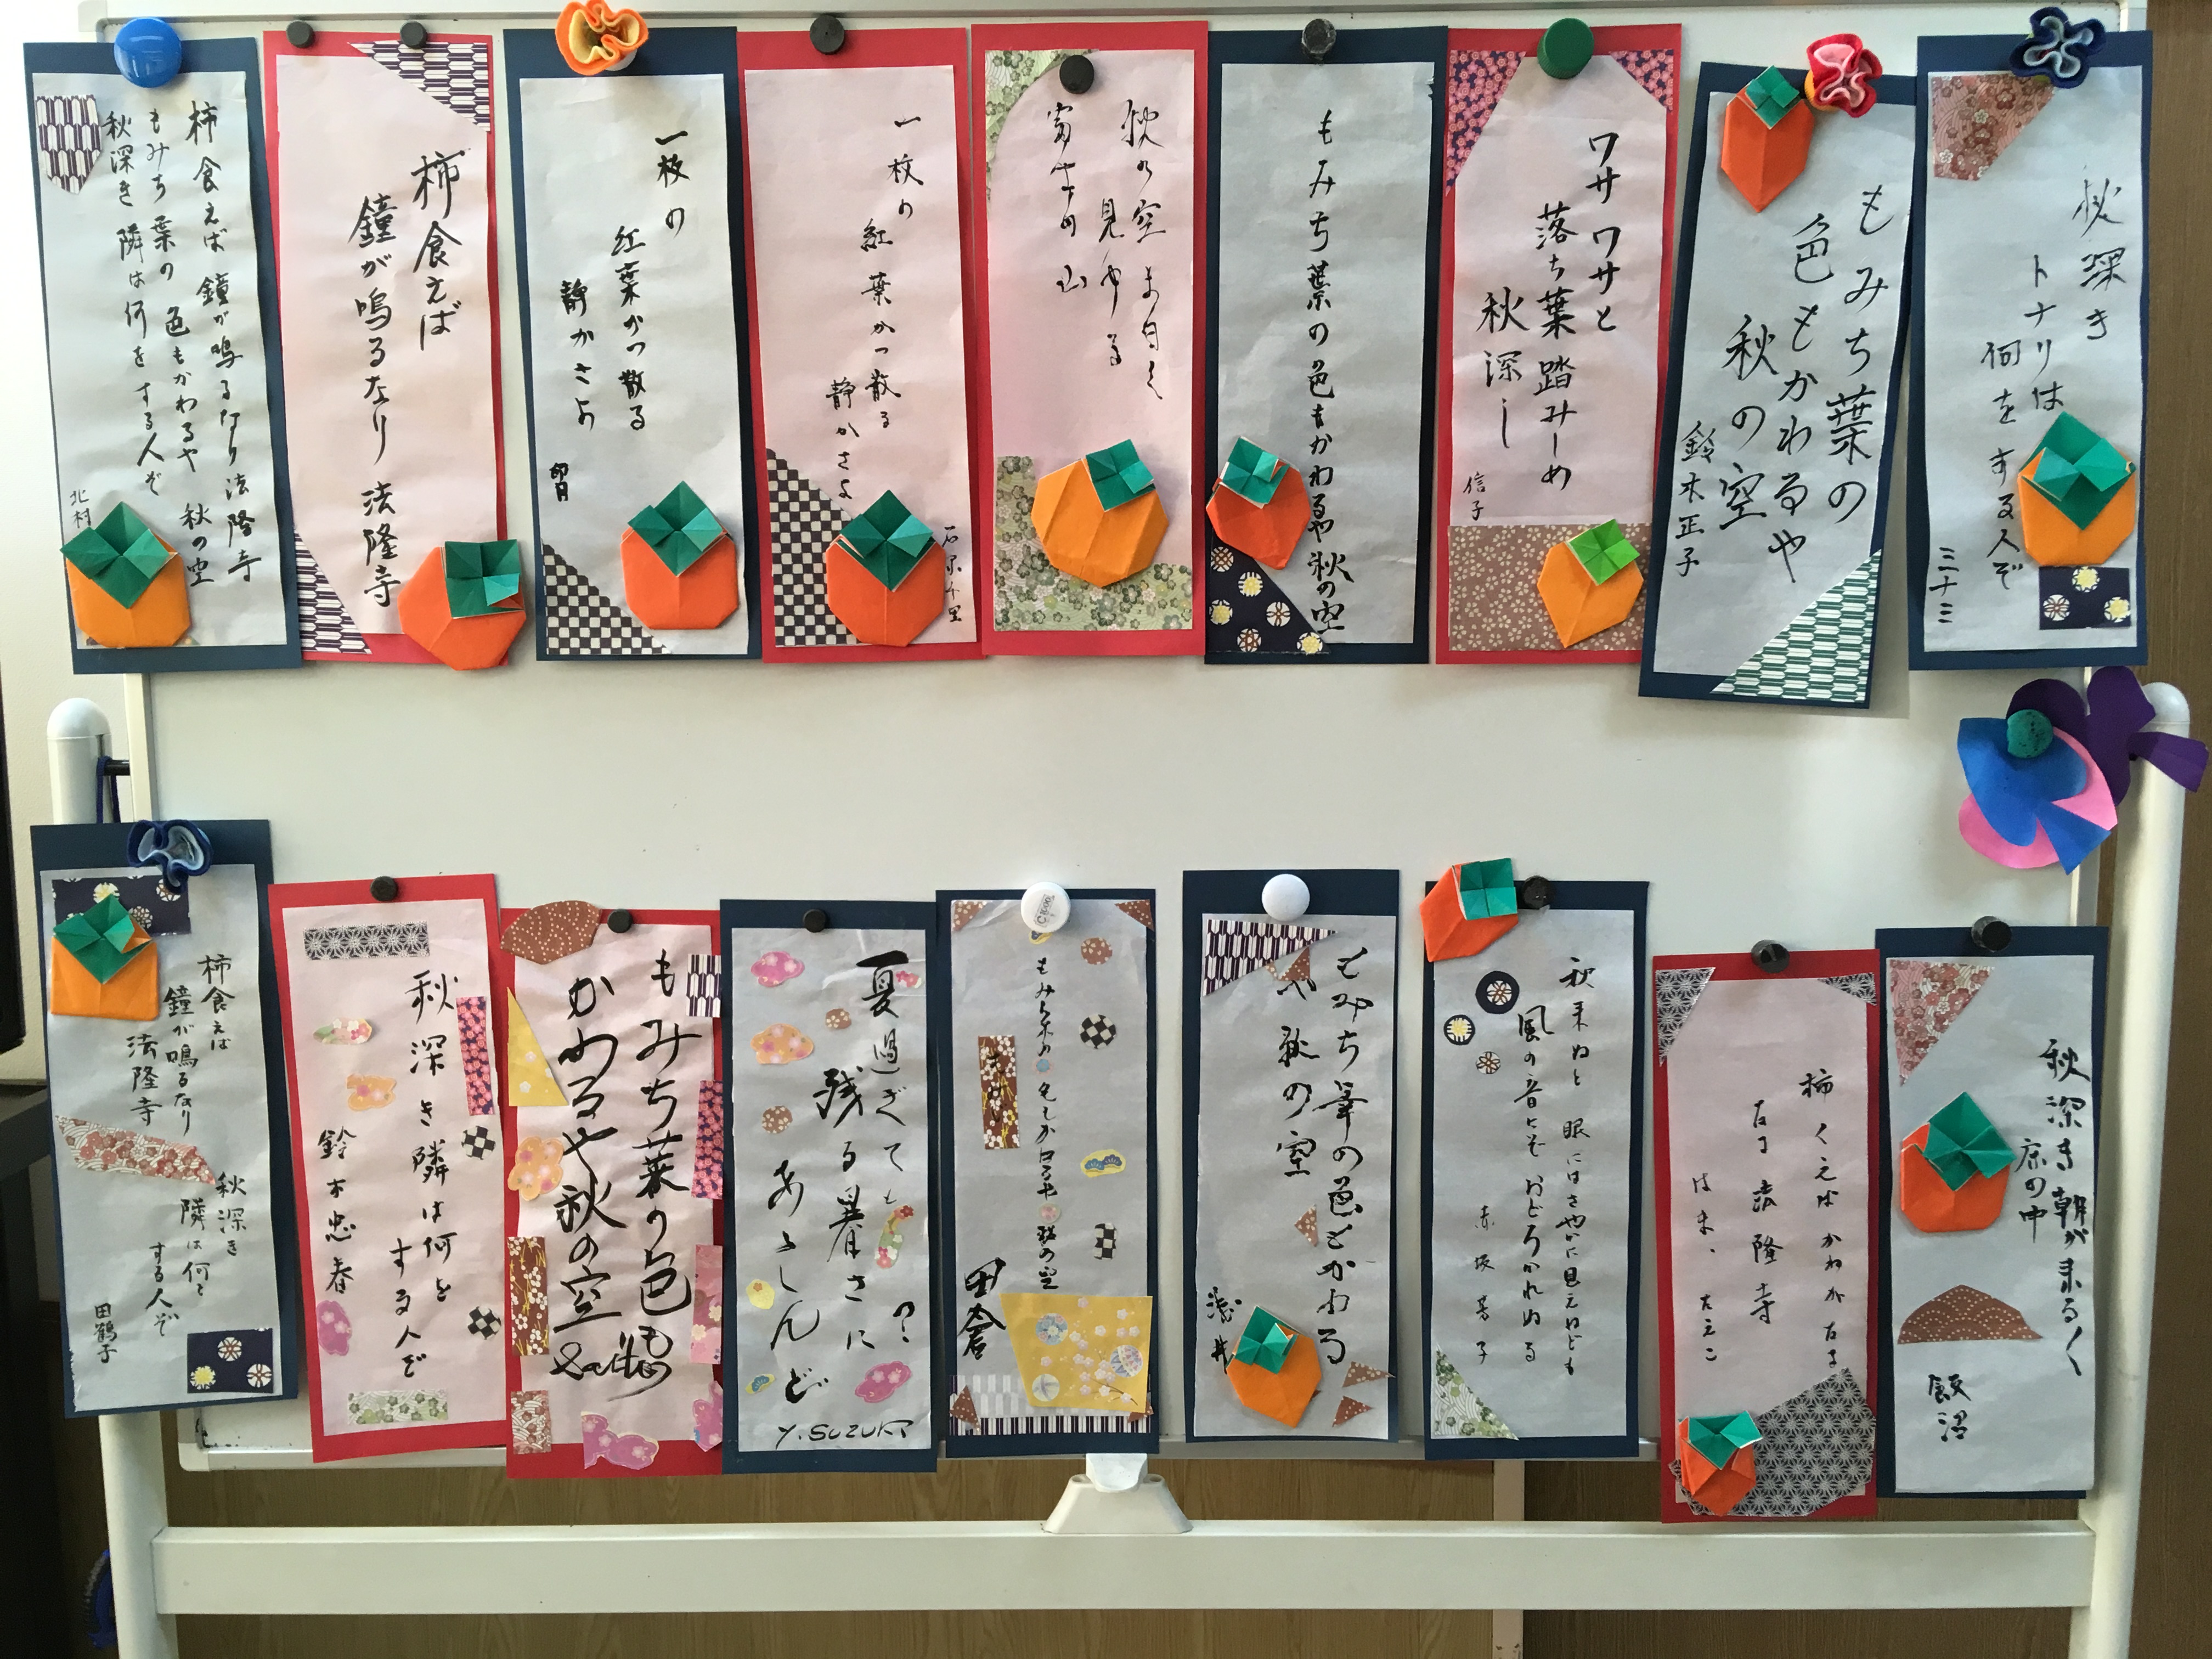 秋深き
トナリは
何をする人ぞ
三十三
もみち葉の
色もかわるや
秋の空
鈴木正子
ワサワサと
落ち葉踏みしめ
秋深し
信子
もみち葉の色もかわるや秋の空
秋の空ま白く
見ゆる
富士の山
一枚の
紅葉かつ散る
静かさよ
石原千里
一枚の
紅葉かつ散る
静かさよ
柿食えば
鐘が鳴るなり 法隆寺
柿食えば 鐘が鳴るなり 法隆寺
もみち葉の 色もかわるや 秋の空
秋深き 隣は何をする人ぞ
北村
秋深き朝が来る
床の中
飯沼
柿くえばかねがなる
なる 法隆寺
秋来ぬと 眼にはさやかに見えねども
風の音にぞおどろかれぬる
赤坂芳子
もみち葉の色もかわる
や 秋の空
浅井
秋の空
田倉
夏過ぎても
残る暑さに
あゝしんど
Y.SUZUKI
もみち葉の色も
かわるや秋の空
秋深き隣は何を
する人ぞ
鈴木忠春
柿食えば
鐘が鳴るなり
法隆寺
秋深き
隣は何を
する人ぞ
田鶴子